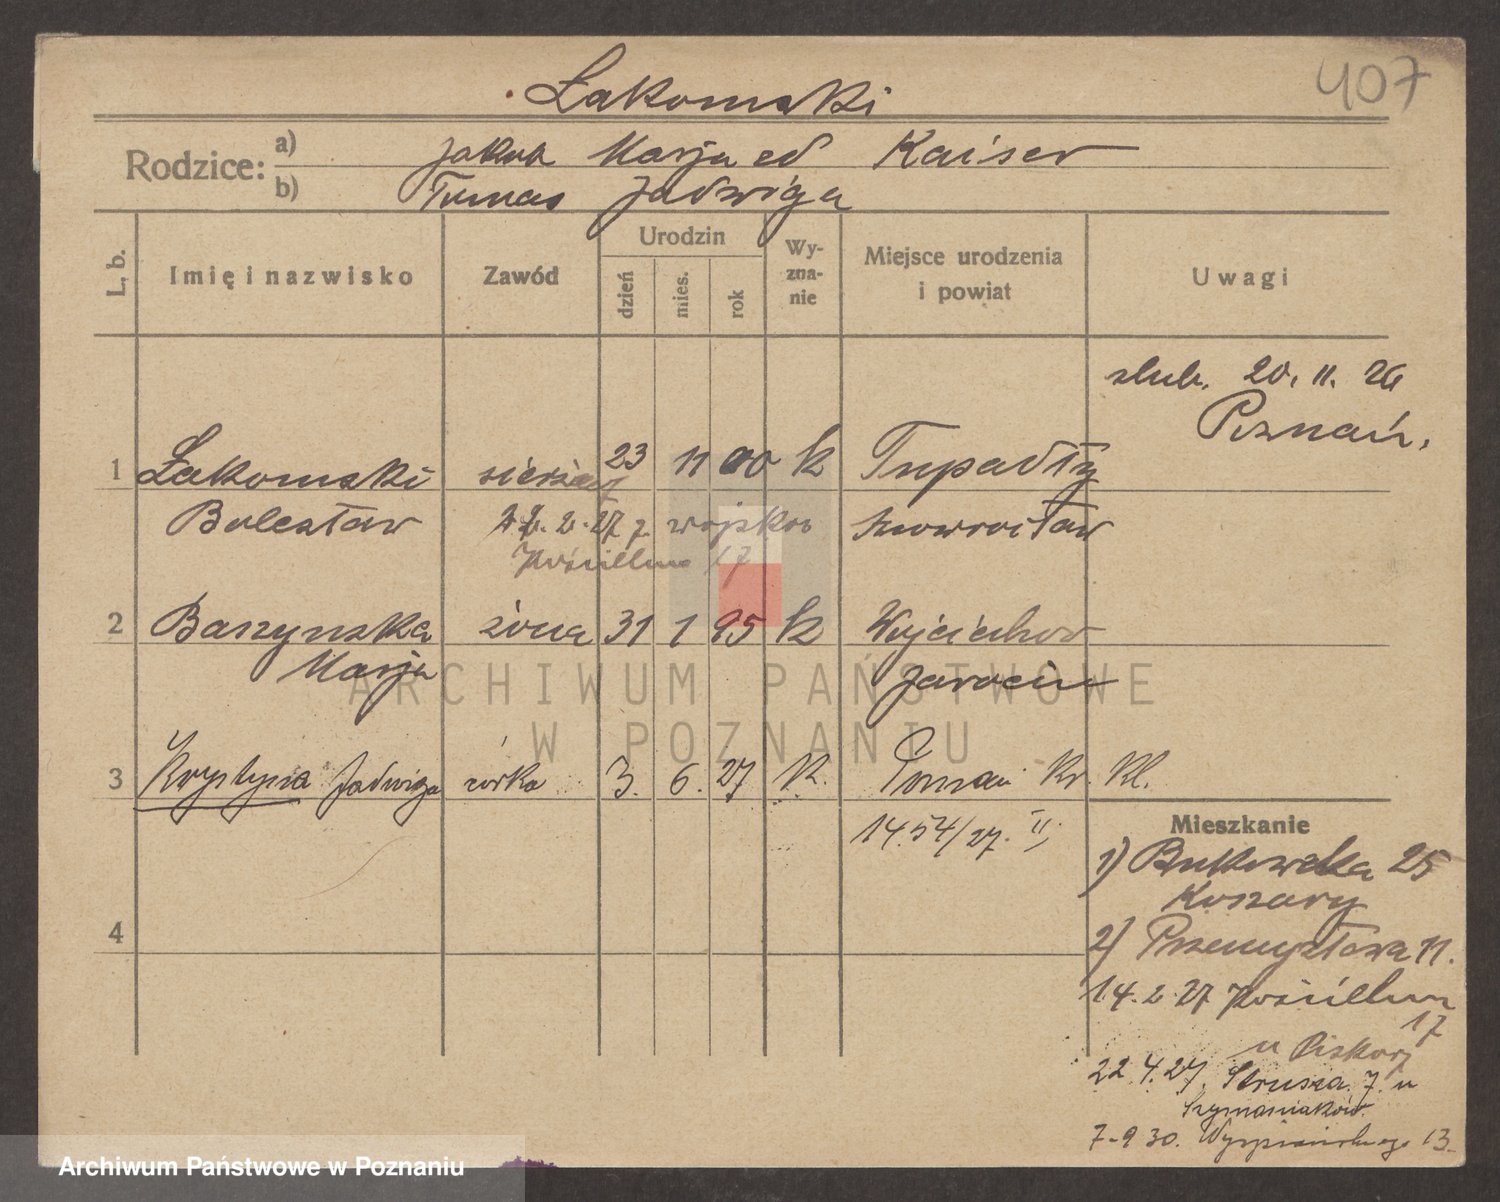 407
Łakomski
Rodzice:
a) Jakub Marja ed Kaiser
b) Tomas Jadwiga
L. b.
Imię i nazwisko
Zawód
Urodzin
dzień
mies.
rok
Wy-
zna-
nie
Miejsce urodzenia
i powiat
Uwagi
ślub. 20. 11. 26
Poznań.
1 Łakomski sierżant 23 11 00 k Tupadły
Bolesław 2. 27 z wojskow Inowrocław
Kościelna 17
2 Baszynska żona 31 1 95 k Wojciechow
Marja Jarocin
3 Krystyna Jadwiga córka 3. 6. 27 K. Poznań Kr. Kl.
1454/27. II,
4
Mieszkanie
1) Bukowska 25
Koszary
2) Przemysłowa 11.
14. 2. 27 Kościelna
17
u Piskorz
22. 4. 27. Strusia 7. u
Szymaniaków
7-9 30. Wyspiańskiego 13.
ARCHIWUM PAŃSTWOWE
W POZNANIU
Archiwum Państwowe w Poznaniu